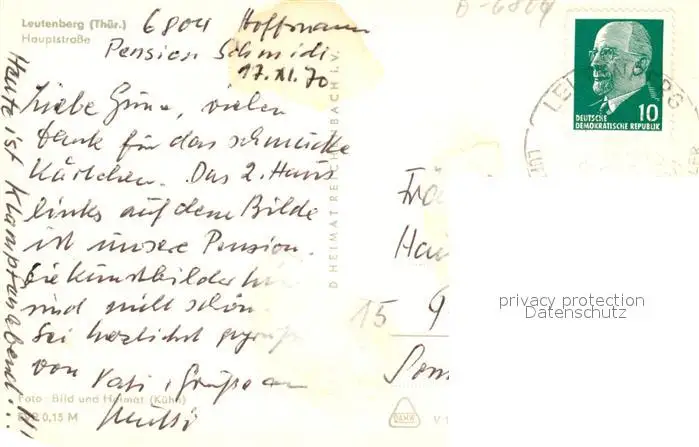 Leutenberg (Thür.)
Hauptstraße
6804 Hoffmann
Pension Schmidt
17.XI.70
Liebe vielen
Dank für das schmucke
Kärtchen. Das 2. Haus
links auf dem Bilde
ist unsere Pension.
Die Kunstbilder
sind nicht schön.
Sei herzlichst
von Vati, Grüße an
Mutti
Heute ist
Foto: Bild und Heimat (Kühn)
EVP 0,15 M
HEIMAT REICHENBACH i.V.
DEUTSCHE
DEMOKRATISCHE REPUBLIK
10
LEUTENBERG
15 9
privacy protection
Datenschutz